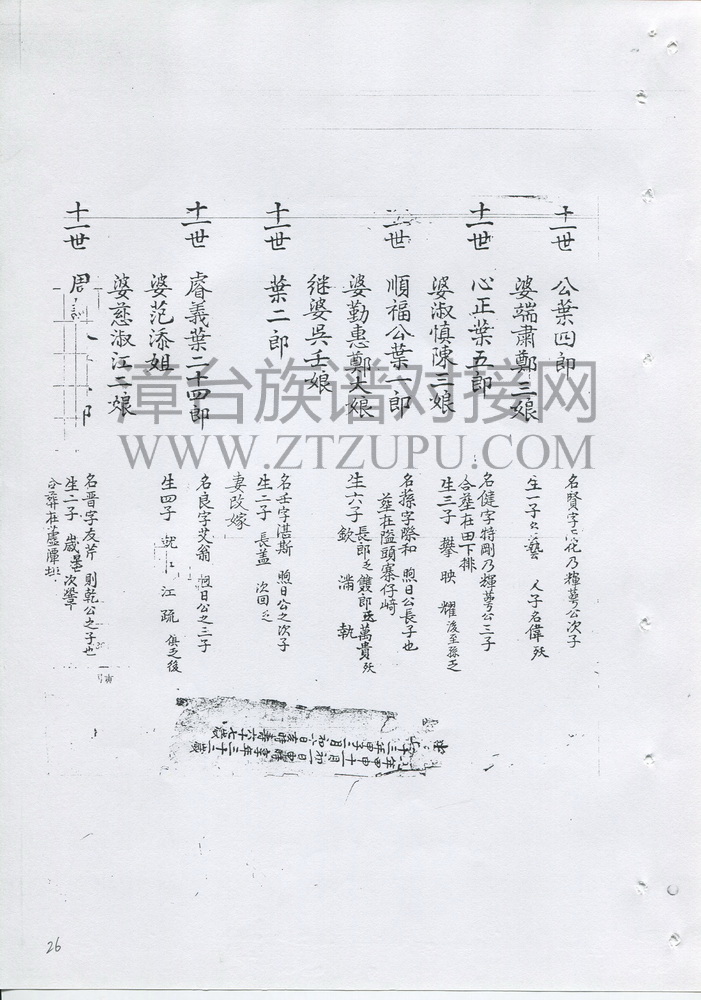 十一世
公葉四郎
名賢字
花乃輝萼公次子
婆端肅鄭三娘
生一子
藝
人子名偉殀
十一世
心正葉五郎
名健字特剛乃輝萼公三子
合葬在田下排
婆淑慎陳三娘
生三子 攀 映 耀 後至孫乏
世
順福公葉八郎
名蓀字際和 煦日公長子也
葬在隘頭寨仔崎
婆勤惠鄭大娘
生六子 長郎乏 鐵郎 萬貴殀
欽 滿 執
继婆吳壬娘
十一世
葉二郎
名壬字湛斯 煦日公之次子
生二子 長蓋 次回乏
妻改嫁
十一世
睿義葉二十四郎
名良字艾翁 煦日公之三子
婆范添姐
生四子
江 疏 俱乏後
婆慈淑江二娘
十一世
周
郎
名晋字友芹 則乾公之子也
生二子 歲
次肇
合葬在蘆潭
甲子二月初六日亥時壽六十七歲
年甲申十一月初一日申時
年三十三歲
漳台族谱对接网
WWW.ZTZUPU.COM
26